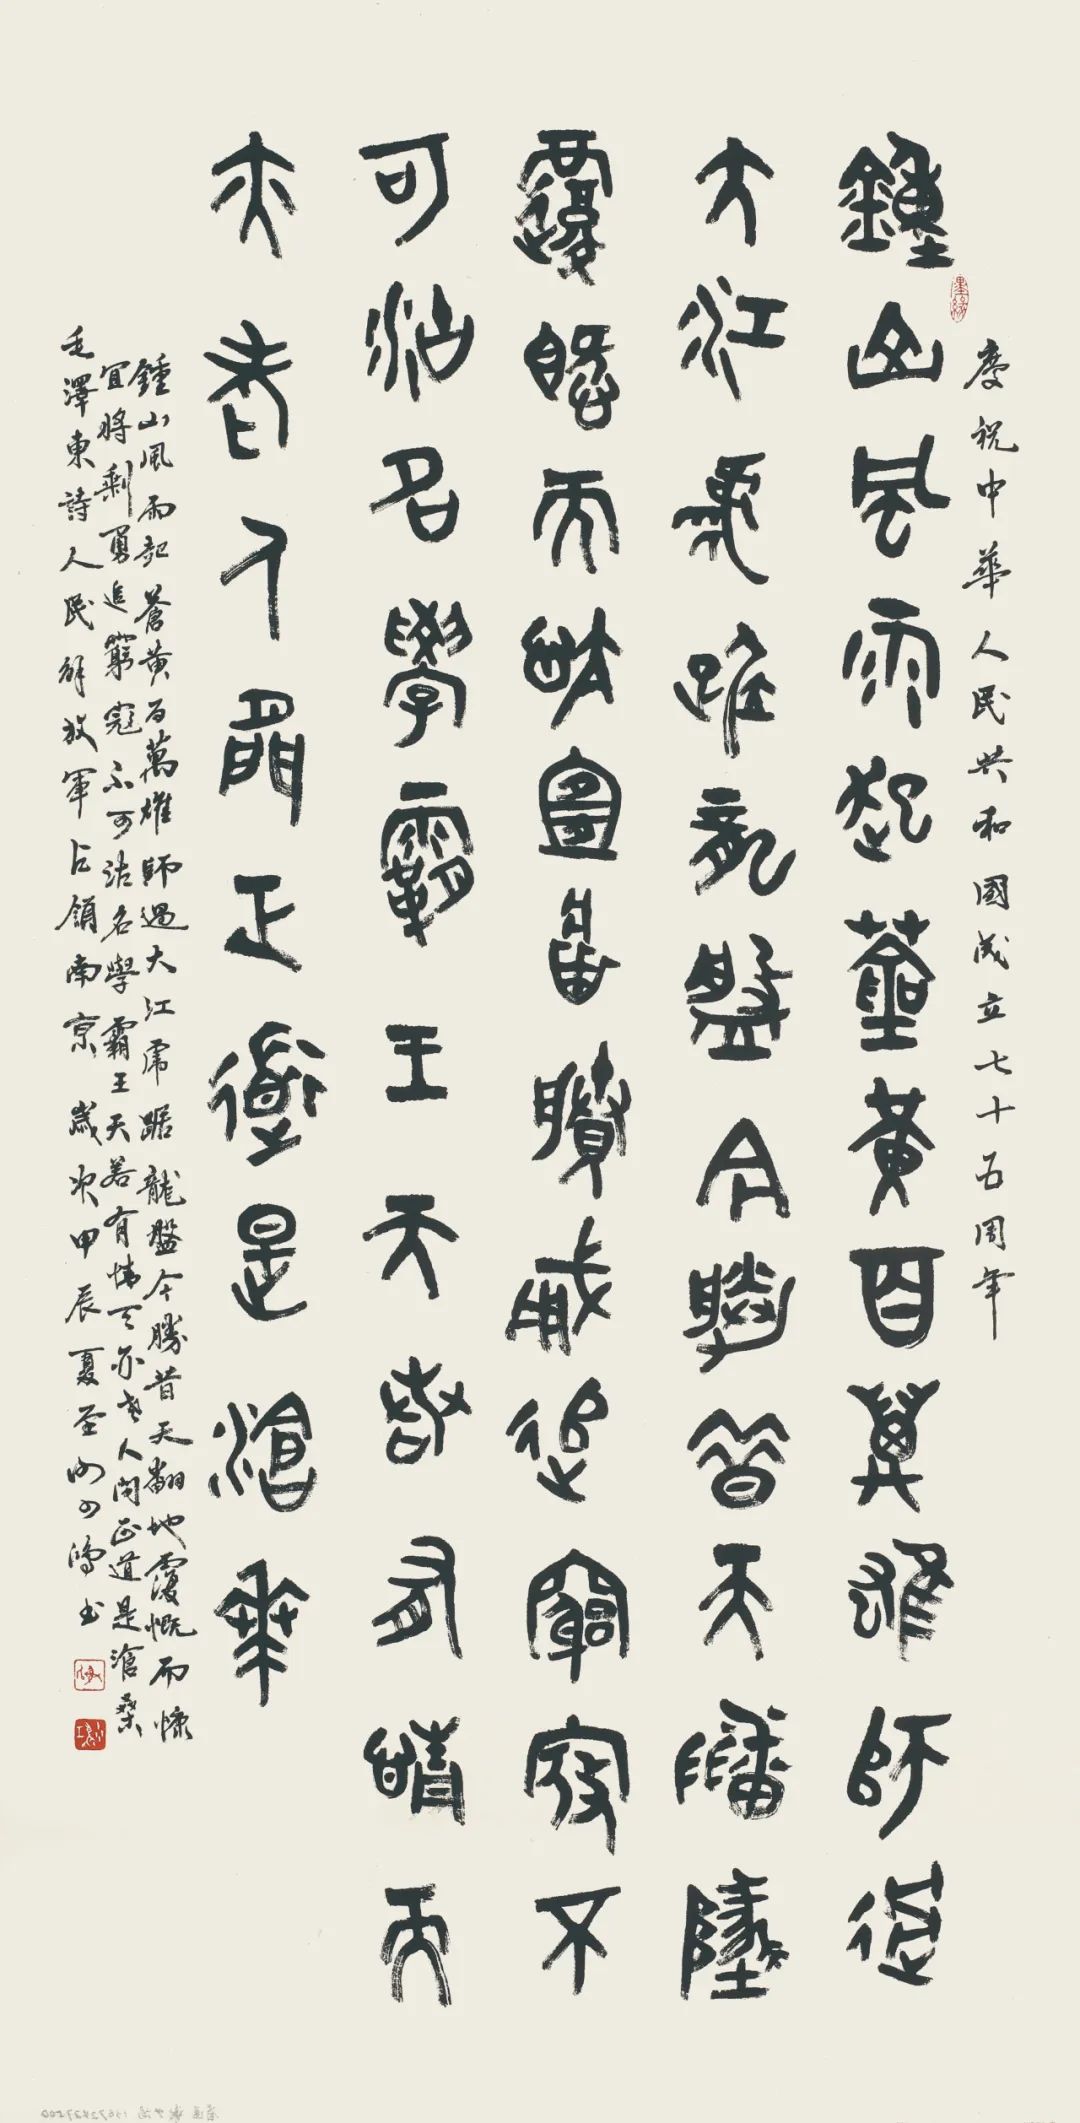 慶祝中華人民共和國成立七十五周年
鍾山風雨起蒼黃百萬雄師過
大江虎踞龍盤今勝昔天翻地
覆慨而慷宜將賸勇追窮寇不
可沽名學霸王天若有情天
亦老人間正道是滄桑
鍾山風雨起蒼黃百萬雄師過大江虎踞龍盤今勝昔天翻地覆慨而慷
宜將剩勇追窮寇不可沽名學霸王天若有情天亦老人間正道是滄桑
毛澤東詩人民解放軍占領南京歲次甲辰夏至書
墨緣